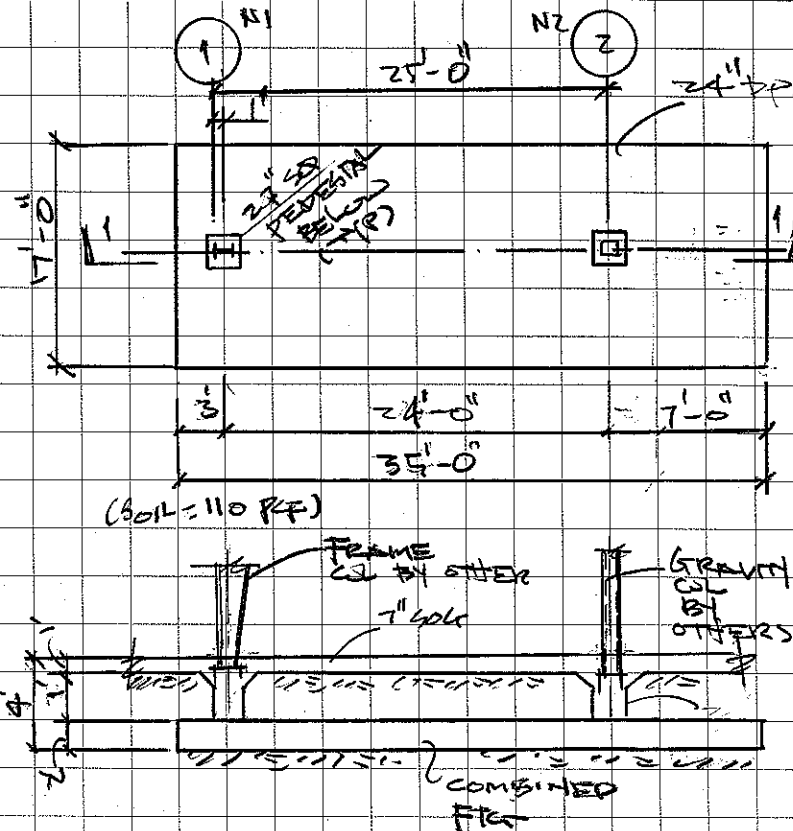 N1
N2
1
2
25'-0"
1'
24"
17'-0"
SQ
PEDESTAL
BELOW
1
1
3'
24'-0"
7'-0"
35'-0"
(SOIL = 110 PCF)
FRAME
COL BY OTHER
GRAVITY
COL
BY
OTHERS
7"
1'
4'
COMBINED
FTG